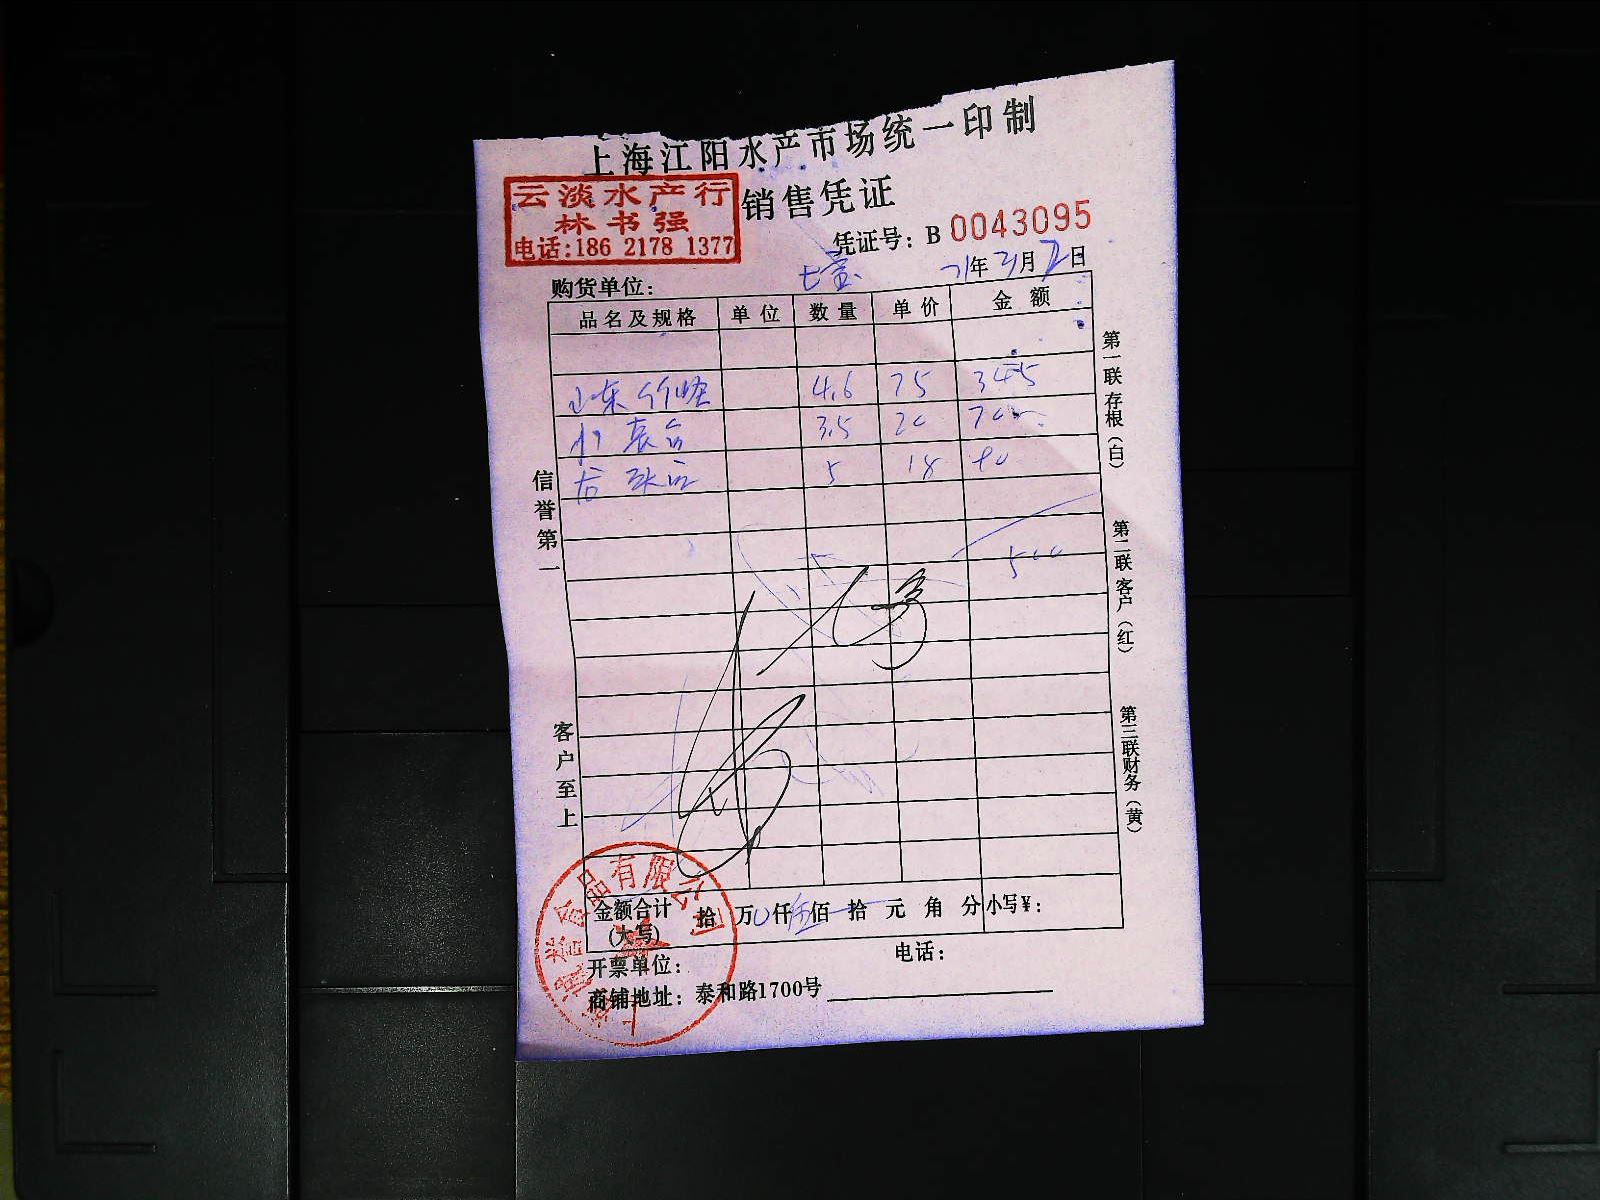 上海江阳水产市场统一印制
云淡水产行
林书强
电话:186 2178 1377
销售凭证
凭证号: B 0043095
购货单位: 七宝
21年3月2日
品名及规格 单位 数量 单价 金额
山东 4.6 75 345
3.5 20 70
5 18 90
500
信誉第一
客户至上
第一联存根(白)
第二联客户(红)
第三联财务(黄)
金额合计(大写) 拾 万 0 仟 伍 佰 拾 元 角 分 小写¥:
开票单位:
电话:
商铺地址: 泰和路1700号